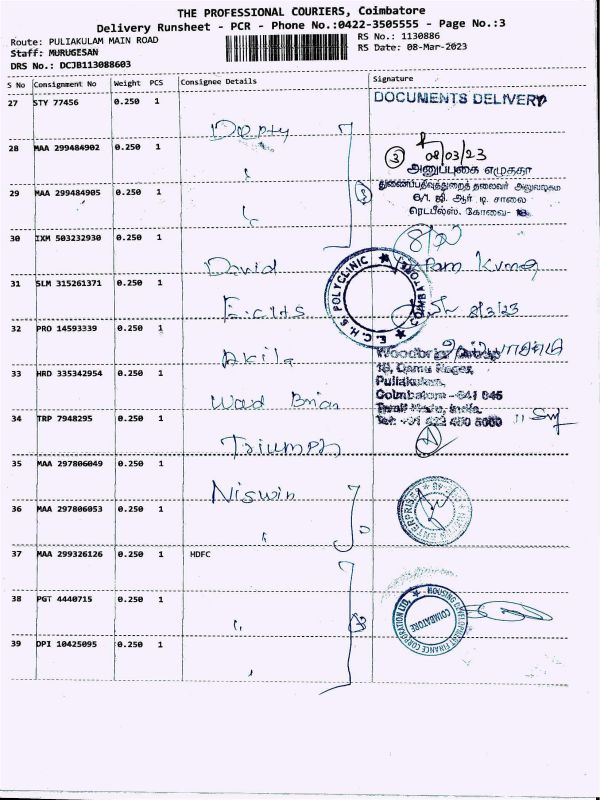 THE PROFESSIONAL COURIERS, Coimbatore
Delivery Runsheet - PCR - Phone No.:0422-3505555 - Page No.:3
Route: PULIAKULAM MAIN ROAD
Staff: MURUGESAN
DRS No.: DCJB113088603
RS No.: 1130886
RS Date: 08-Mar-2023
S No Consignment No Weight PCS Consignee Details Signature
27 STY 77456 0.250 1
DOCUMENTS DELIVERY
28 MAA 299484902 0.250 1
3 08/03/23
அனுப்புகை எழுத்தர்
29 MAA 299484905 0.250 1
3
30 IXM 503232930 0.250 1
David
Ram Kumar
31 SLM 315261371 0.250 1
E.C.H.S POLYCLINIC
8/3/23
32 PRO 14593339 0.250 1
Akila
Woodbriar Group
33 HRD 335342954 0.250 1
Puliakulam,
Coimbatore - 641 045
Tamil Nadu, India.
34 TRP 7948295 0.250 1
Triumph
35 MAA 297806049 0.250 1
Niswin
36 MAA 297806053 0.250 1
ENTERPRISES
37 MAA 299326126 0.250 1 HDFC
38 PGT 4440715 0.250 1
3
HOUSING DEVELOPMENT FINANCE CORPORATION LTD.
COIMBATORE
39 DPI 10425095 0.250 1